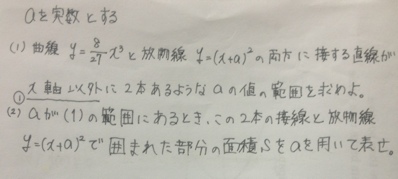 aを実数とする
(1) 曲線 y=8/27 x³ と放物線 y=(x+a)² の両方に接する直線が
x軸以外に2本あるようなaの値の範囲を求めよ。
①
(2) aが(1)の範囲にあるとき、この2本の接線と放物線
y=(x+a)² で囲まれた部分の面積Sをaを用いて表せ。